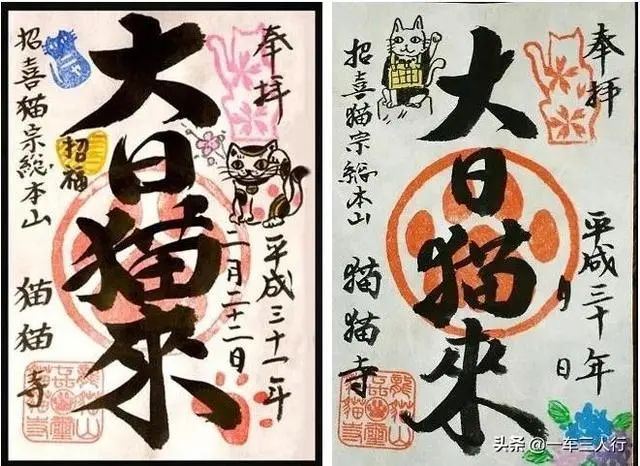 奉拝
大日猫來
平成三十一年
二月二十二日
招喜猫宗総本山
猫猫寺
招福
奉拝
大日猫来
平成三十年
月
日
招喜猫宗総本山
猫猫寺
头条 @一车三人行